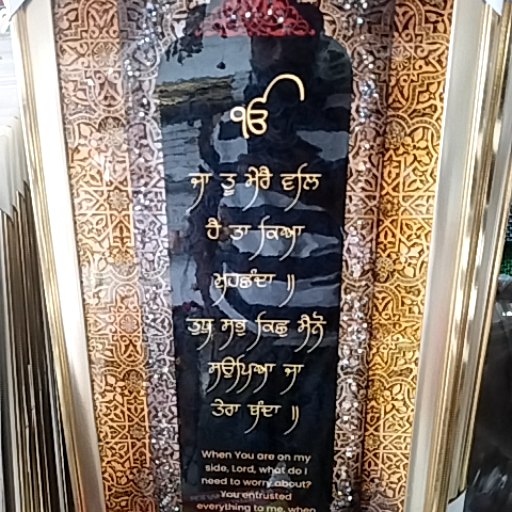 ੴ
ਜਾ ਤੂ ਮੇਰੈ ਵਲਿ
ਹੈ ਤਾ ਕਿਆ
ਮੁਹਛੰਦਾ ॥
ਤੁਧੁ ਸਭੁ ਕਿਛੁ ਮੈਨੋ
ਸਉਪਿਆ ਜਾ
ਤੇਰਾ ਬੰਦਾ ॥
When You are on my
side, Lord, what do I
need to worry about?
You entrusted
everything to me, when